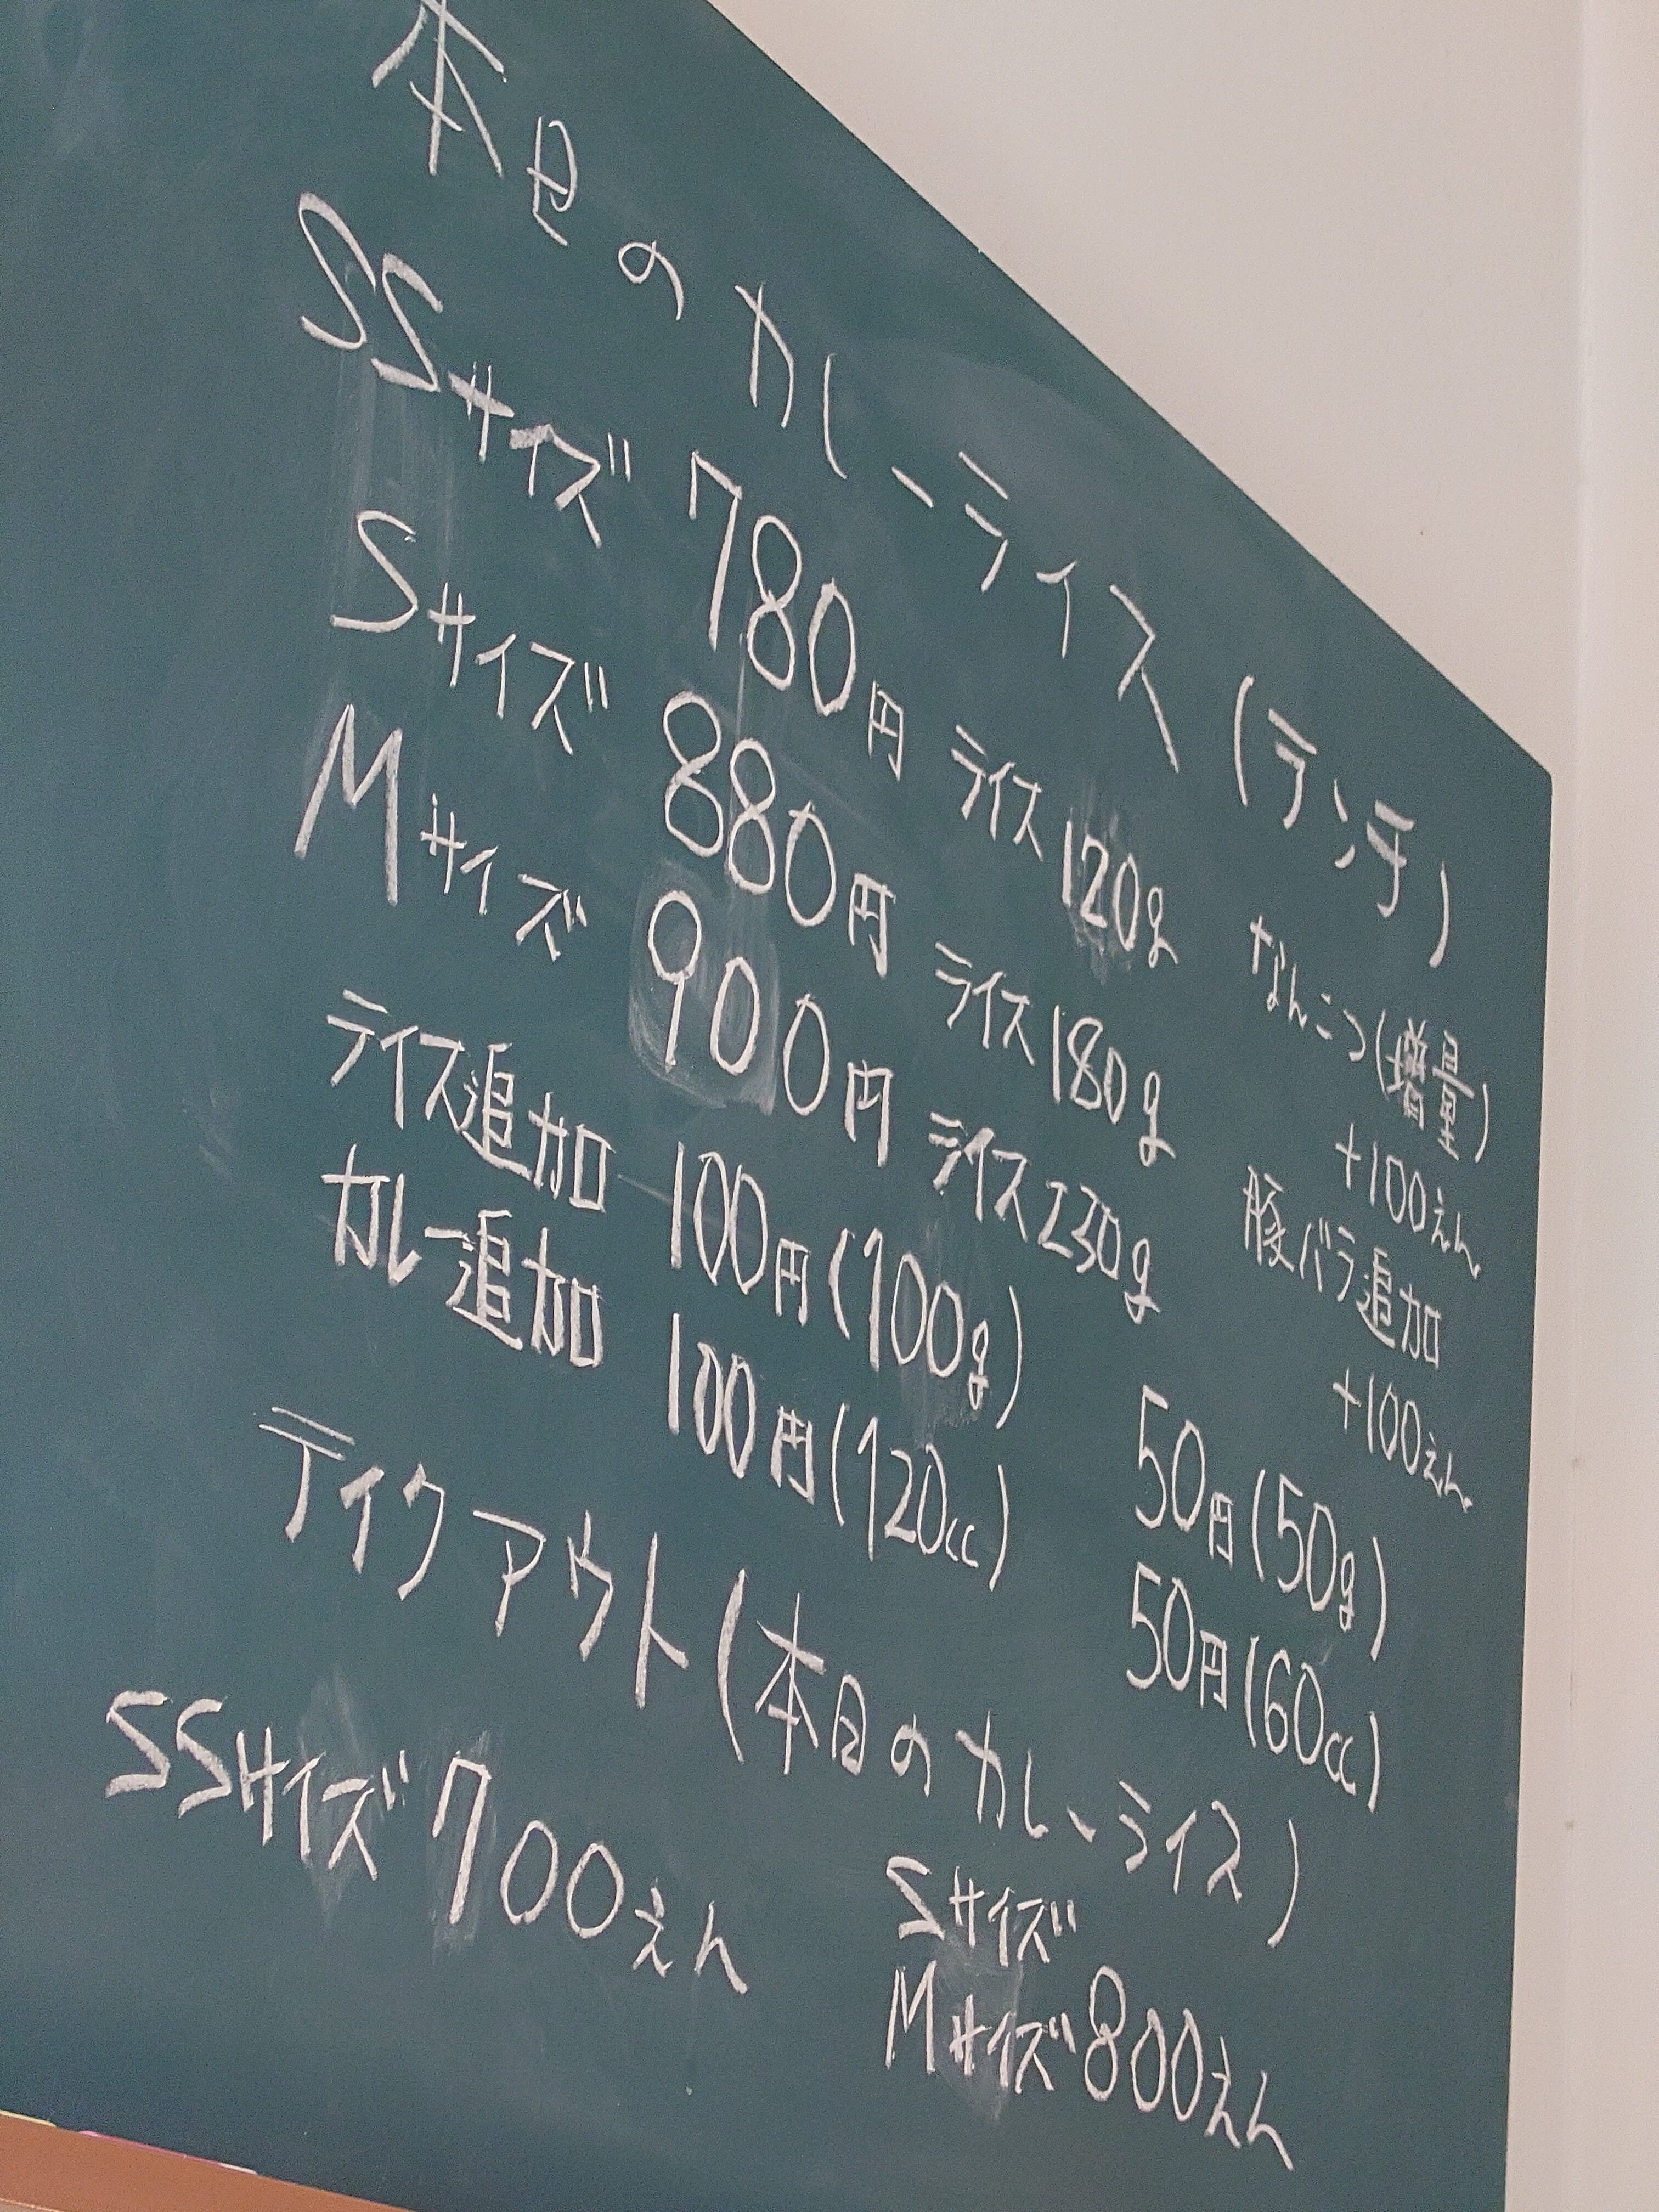 本日のカレーライス (ランチ)
SSサイズ 780円 ライス120g
Sサイズ 880円 ライス180g
Mサイズ 900円 ライス230g
なんこつ(増量)
+100えん
豚バラ追加
+100えん
ライス追加 100円(100g) 50円(50g)
カレー追加 100円(120cc) 50円(60cc)
テイクアウト(本日のカレーライス)
SSサイズ 700えん
Sサイズ
Mサイズ 800えん